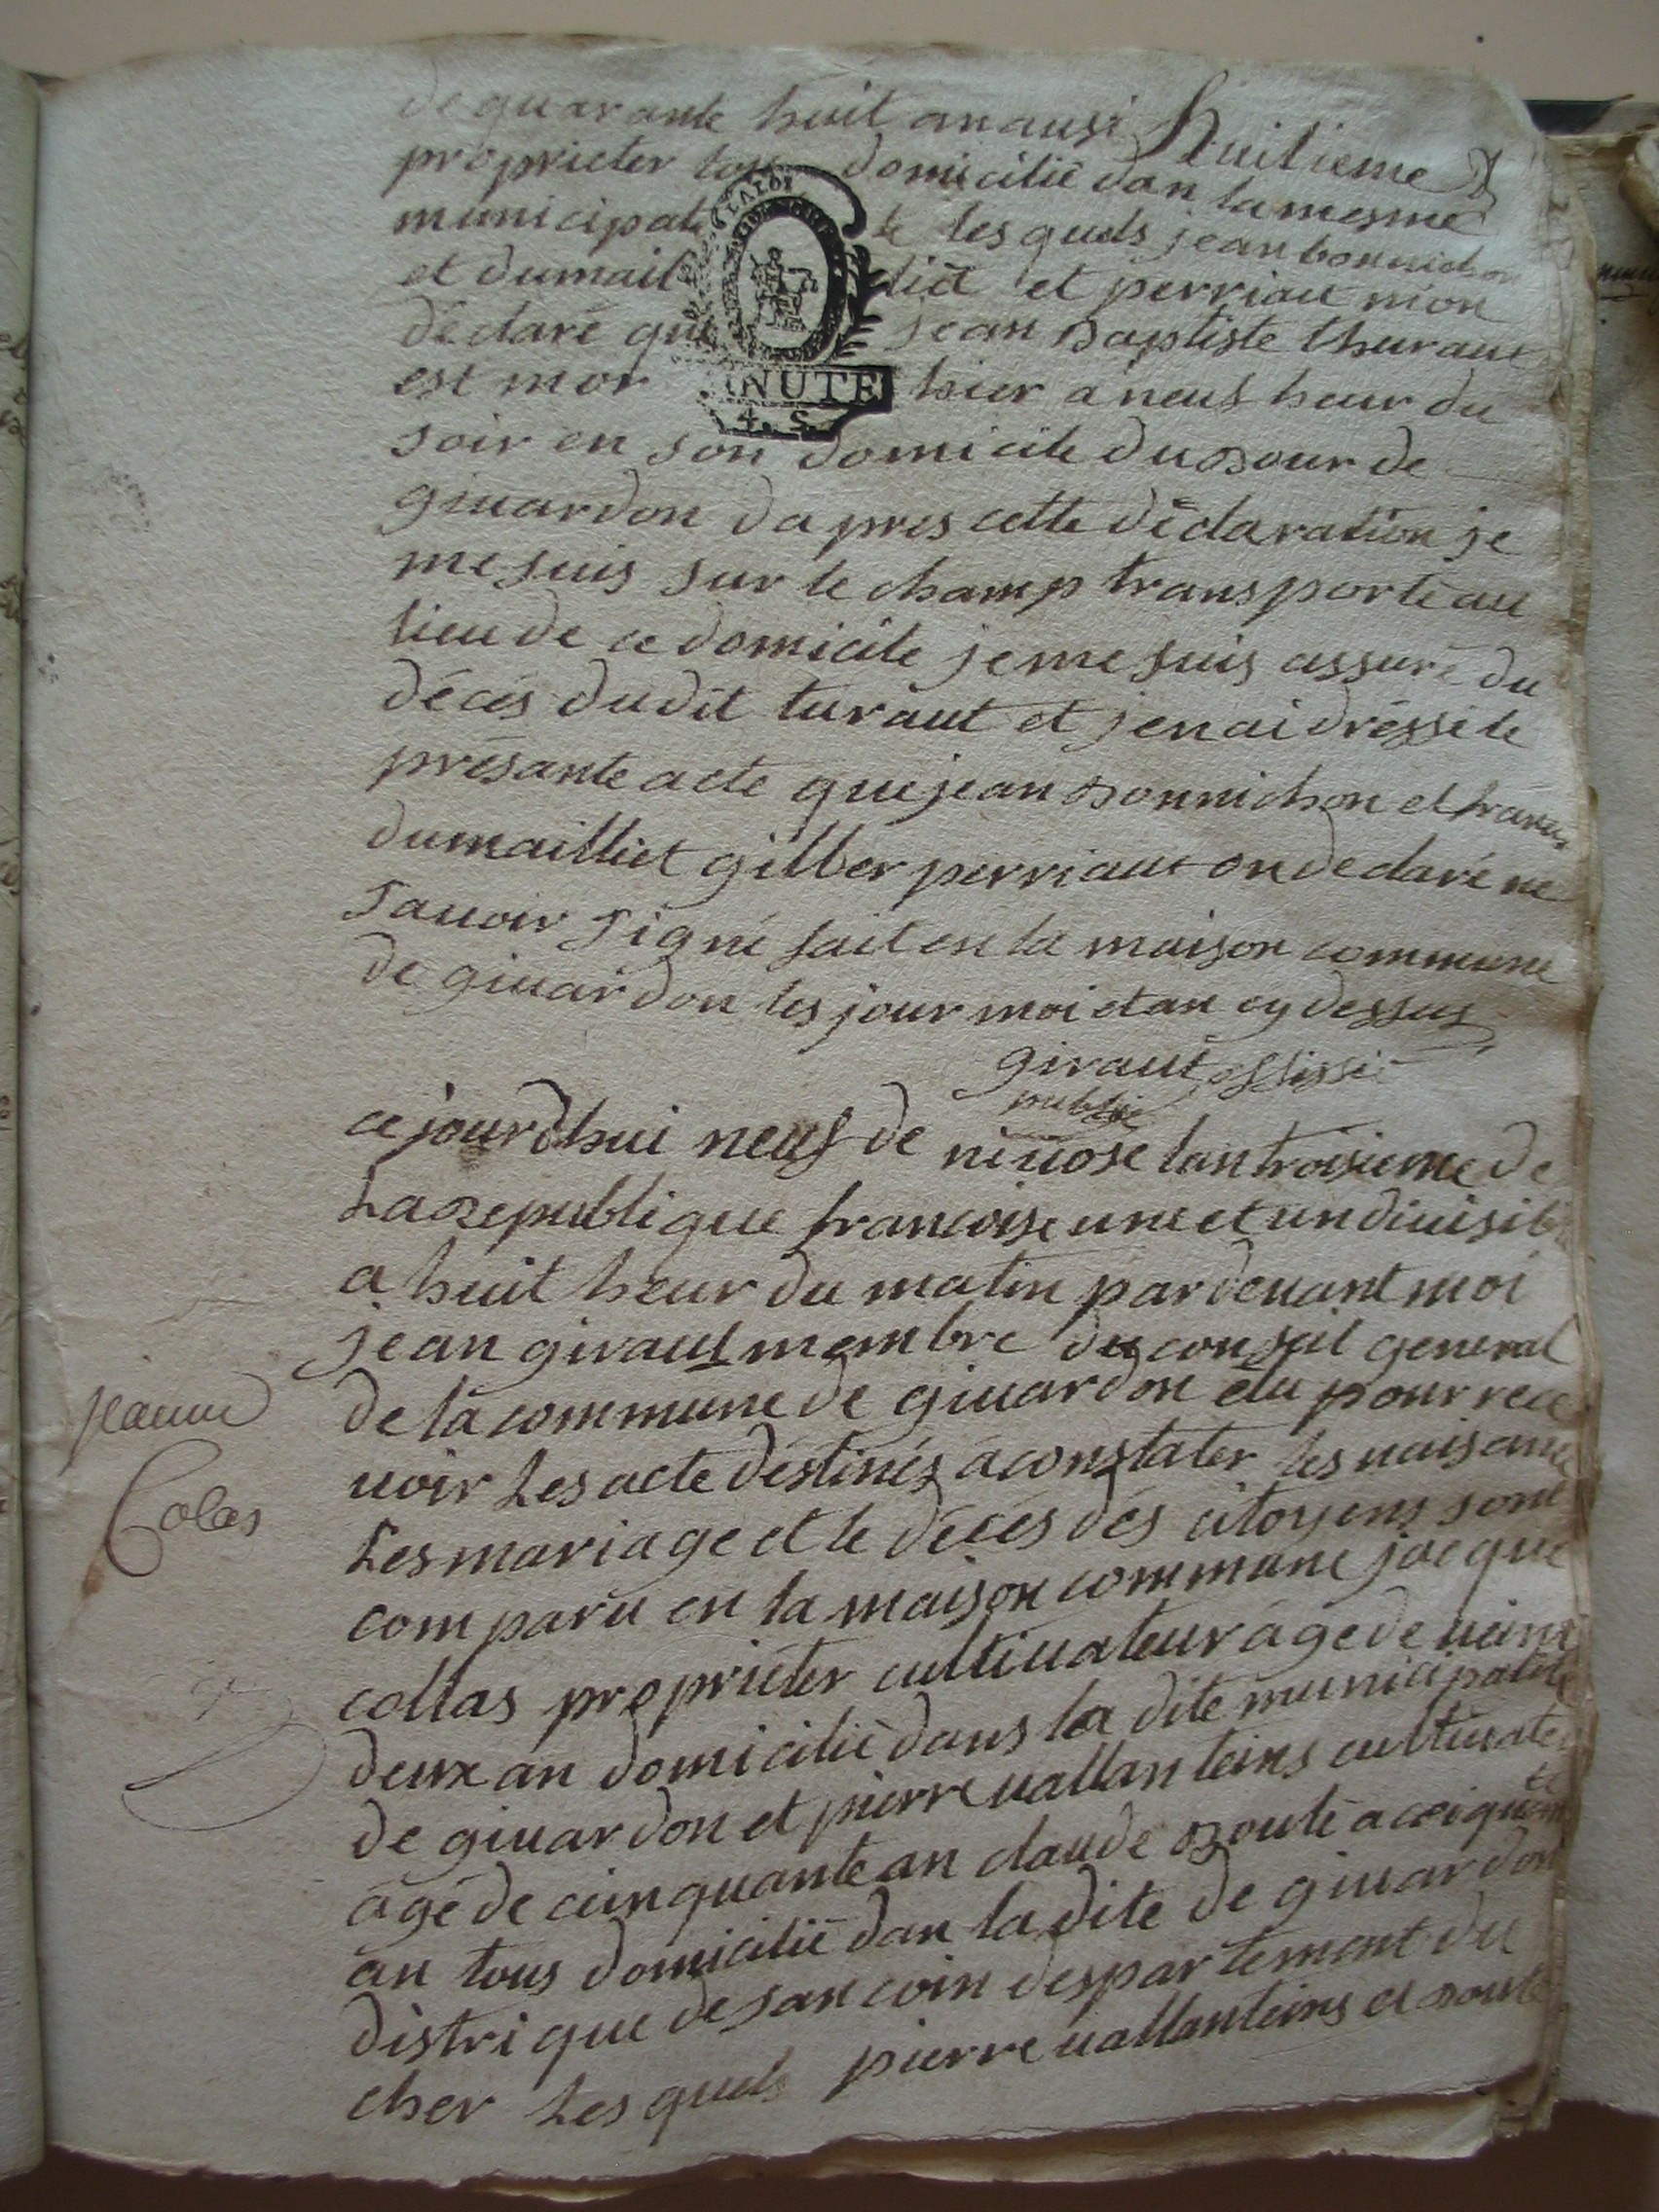 de quarante huit an ausi
huitieme
proprieter tous domicilié dan la mesme
municipalite les quels jean bonnichon
et dumailliet et perriau mon
déclaré que jean Baptiste thuraut
est mor hier a neuf heur du
soir en son domicile du bour de
giuardon da pres cette déclaration je
me suis sur le champ transporté au
lieu de ce domicile je me suis assuré du
décès dudit turaut et jen ai dréssé le
présante acte que jean bonnichon et
dumailliet gilber perriaut on declaré ne
sauoir signé fait en la maison commune
de giuardon les jour moi et an cy dessus
giraut offissié
public
ce jourdhui neuf de niuose lan troisieme de
La republique francoise une et undiuisib
a huit heur du matin par deuant moi
jean giraut membre du consail general
de la commune de giuardon élu pour rece
uoir Les acte destinés a constater les naisance
Les mariage et le décés dés citoyens sont
comparu en la maison commune jacque
collas proprieter cultiuateur agé de uaint
deux an domicilié dans la dite municipalité
de giuardon et pierre uallanteins cultiuateu
agé de cinquante an claude boute a cinquante
an tous domicilié dan la dite de giuardon
distrique de sancoin despartement du
cher Les quels pierre uallanteins et boute
jeanne
Colas
LA LOI
MINUTE
4. S.